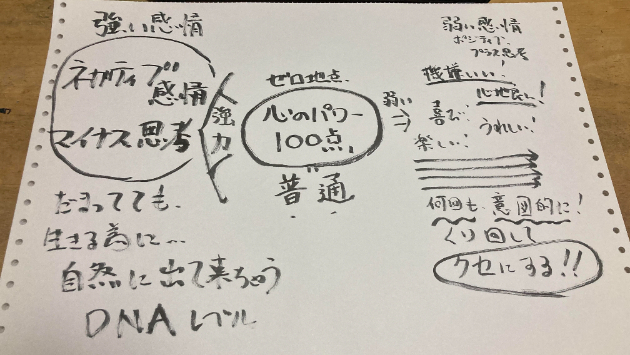 強い感情
ネガティブ感情
マイナス思考
強力
だまってても、
生きる為に…
自然に出て来ちゃう
DNAレベル
ゼロ地点
心のパワー
100点
普通
弱い感情
ポジティブ
プラス思考
弱い
機嫌いい!
心地良い!
喜び!
うれしい!
楽しい!
何回も、意図的に!
くり回して
クセにする!!